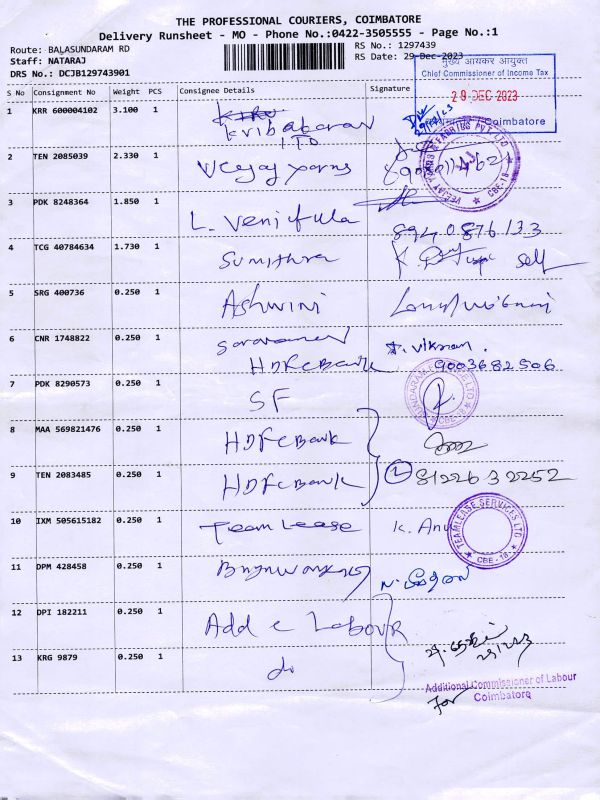 THE PROFESSIONAL COURIERS, COIMBATORE
Delivery Runsheet - MO - Phone No.:0422-3505555 - Page No.:1
Route: BALASUNDARAM RD
RS No.: 1297439
Staff: NATARAJ
RS Date: 29-Dec-2023
DRS No.: DCJB129743901
मुख्य आयकर आयुक्त
Chief Commissioner of Income Tax
29 DEC 2023
Coimbatore
S No Consignment No Weight PCS Consignee Details Signature
1 KRR 600004102 3.100 1
ITO
2 TEN 2085039 2.330 1 Veejay yarns
VEEJAY YARNS & FABRICS PVT LTD CBE-18
3 PDK 8248364 1.850 1 L. Venifula
8940876133
4 TCG 40784634 1.730 1 Sumithra self
5 SRG 400736 0.250 1 Ashwini
6 CNR 1748822 0.250 1 Saravanan vikram.
HDFC Bank 9003682506
7 PDK 8290573 0.250 1 SF
CBE-18
8 MAA 569821476 0.250 1 HDFC Bank
9 TEN 2083485 0.250 1 HDFC Bank 2 8122632252
10 IXM 505615182 0.250 1 Team Lease K. Anu
TEAMLEASE SERVICES LTD CBE-18
11 DPM 428458 0.250 1
12 DPI 182211 0.250 1 Add c Labour
13 KRG 9879 0.250 1 do
Additional Commissioner of Labour
for Coimbatore